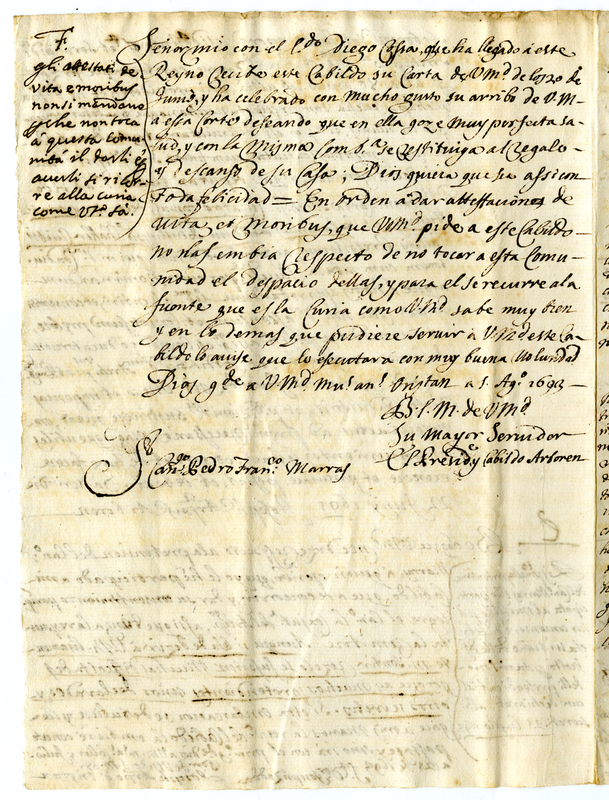 F.
gli attestati de
vita e moribus
non si mandano
per che non toca
à questa Comu
nità il darli
averli si ricor
re alla curia
come V.ra S.a
Señor mio con el L.do Diego Cossa, que ha llegado â este
Reyno recibe este Cabildo su Carta de V.Md. de los 20 de
Junio, y ha celebrado con mucho gusto su arribo de V.M.
â essa Corte deseando que en ella goze muy perfecta sa-
lud, y con la misma se restituiga al Regalo
y descanso de su Casa; Dios quiera que sea assi con
toda felicidad = En orden â dar attestaciones de
Vita, et Moribus, que V.Md. pide a este Cabildo
no las embia Respecto de no tocar a esta Comu-
nidad el despacio dellas, y para el se recurre a la
fuente que es la Curia como V.Md. sabe muy bien
y en lo demas que pudiere servir â V.Md. este Ca-
bildo lo avise que lo executara con muy buena Voluntad
Dios g.de a V.Md. Mu.s an.s Oristan a 1. Ag.o 1693
B. L. M. de V.Md.
Su Mayor Servidor
El Presid.e y Cabildo Arboren
S.r
Can.go Pedro Fran.co Marras